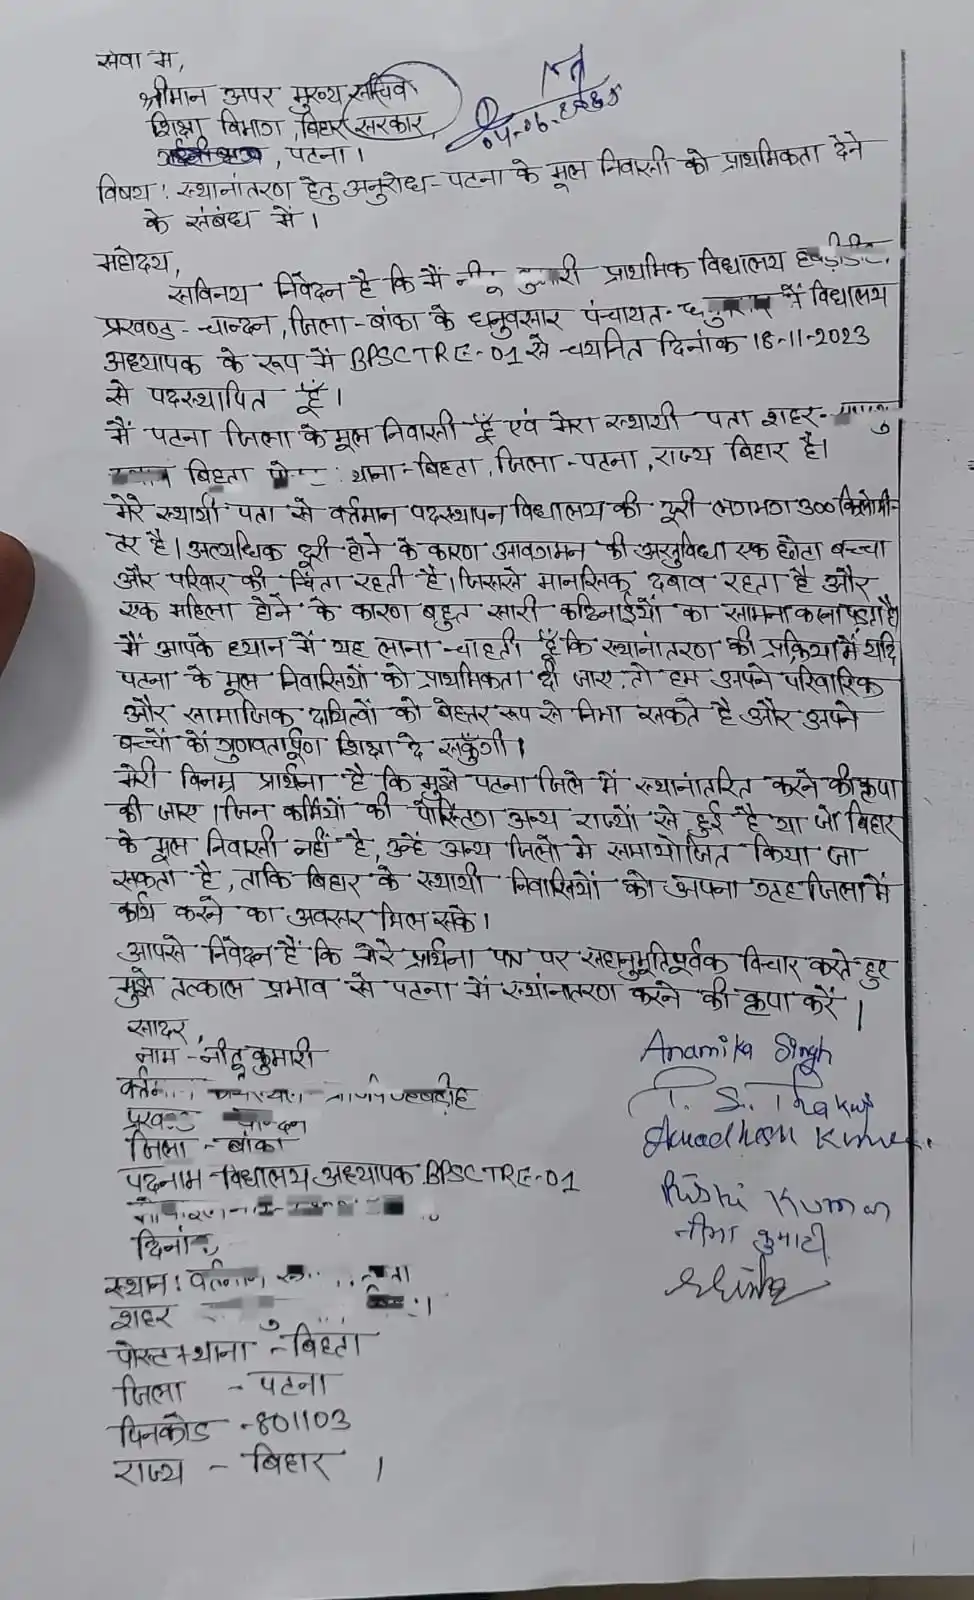 सेवा में,
श्रीमान अपर मुख्य सचिव
शिक्षा विभाग, बिहार सरकार,
, पटना।
04-06-2025
विषय: स्थानांतरण हेतु अनुरोध- पटना के मूल निवासी को प्राथमिकता देने
के संबंध में।
महोदय,
सविनय निवेदन है कि मैं प्राथमिक विद्यालय
प्रखण्ड - चान्दन, जिला-बांका के धनुवसार पंचायत- में विद्यालय
अध्यापक के रूप में BPSCTRE-01 से चयनित दिनांक 18-11-2023
से पदस्थापित हूँ।
मैं पटना जिला के मूल निवासी हूँ एवं मेरा स्थायी पता शहर-
बिहटा थाना-बिहटा, जिला-पटना, राज्य बिहार है।
मेरे स्थायी पता से वर्तमान पदस्थापन विद्यालय की दूरी लगभग 300 किलोमी-
टर है। अत्यधिक दूरी होने के कारण आवागमन की असुविधा एक छोटा बच्चा
और परिवार की चिंता रहती है। जिससे मानसिक दबाव रहता है और
एक महिला होने के कारण बहुत सारी कठिनाईयों का सामना करना पड़ता है
मैं आपके ध्यान में यह लाना चाहती हूँ कि स्थानांतरण की प्रक्रिया में यदि
पटना के मूल निवासियों को प्राथमिकता दी जाए, तो हम अपने परिवारिक
और सामाजिक दायित्वों को बेहतर रूप से निभा सकते है और अपने
बच्चों को गुणवतापूर्ण शिक्षा दे सकूँगी।
मेरी विनम्र प्रार्थना है कि मुझे पटना जिले में स्थानांतरित करने की कृपा
की जाए। जिन कर्मियों की पोस्टिंग अन्य राज्यों से हुई है या जो बिहार
के मूल निवासी नहीं है, उन्हें अन्य जिलों में समायोजित किया जा
सकता है, ताकि बिहार के स्थायी निवासियों को अपना गृह जिला में
कार्य करने का अवसर मिल सके।
आपसे निवेदन हैं कि मेरे प्रार्थना पत्र पर सहानुभूतिपूर्वक विचार करते हुए
मुझे तत्काल प्रभाव से पटना में स्थांनातरण करने की कृपा करें।
सादर,
नाम - नीतू कुमारी
Anamika Singh
प्रखण्ड चान्दन
T. S. Thakur
जिला - बांका
Awadhesh Kumar
पदनाम - विद्यालय अध्यापक BPSCTRE-01
Rishi Kuman
दिनांक
नीमा कुमारी
स्थान:
शहर
पोस्ट+थाना - बिहटा
जिला - पटना
पिनकोड -801103
राज्य - बिहार।